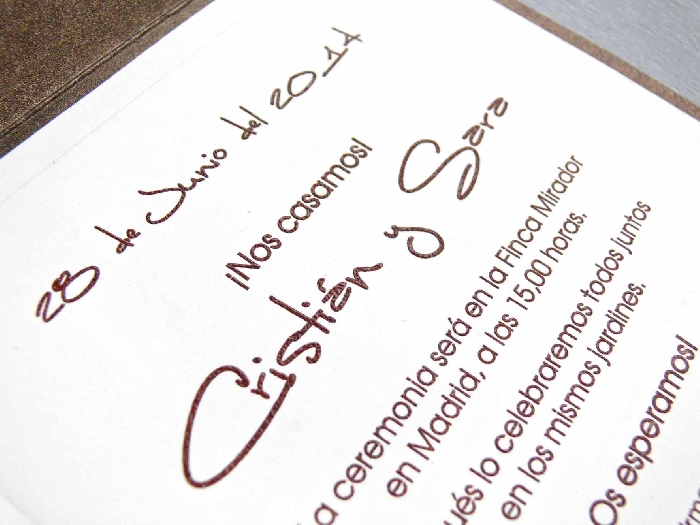 28 de Junio del 2014
¡Nos casamos!
Cristián y Sara
a ceremonia será en la Finca Mirador
en Madrid, a las 15,00 horas.
ués lo celebraremos todos juntos
en los mismos jardines.
Os esperamos!